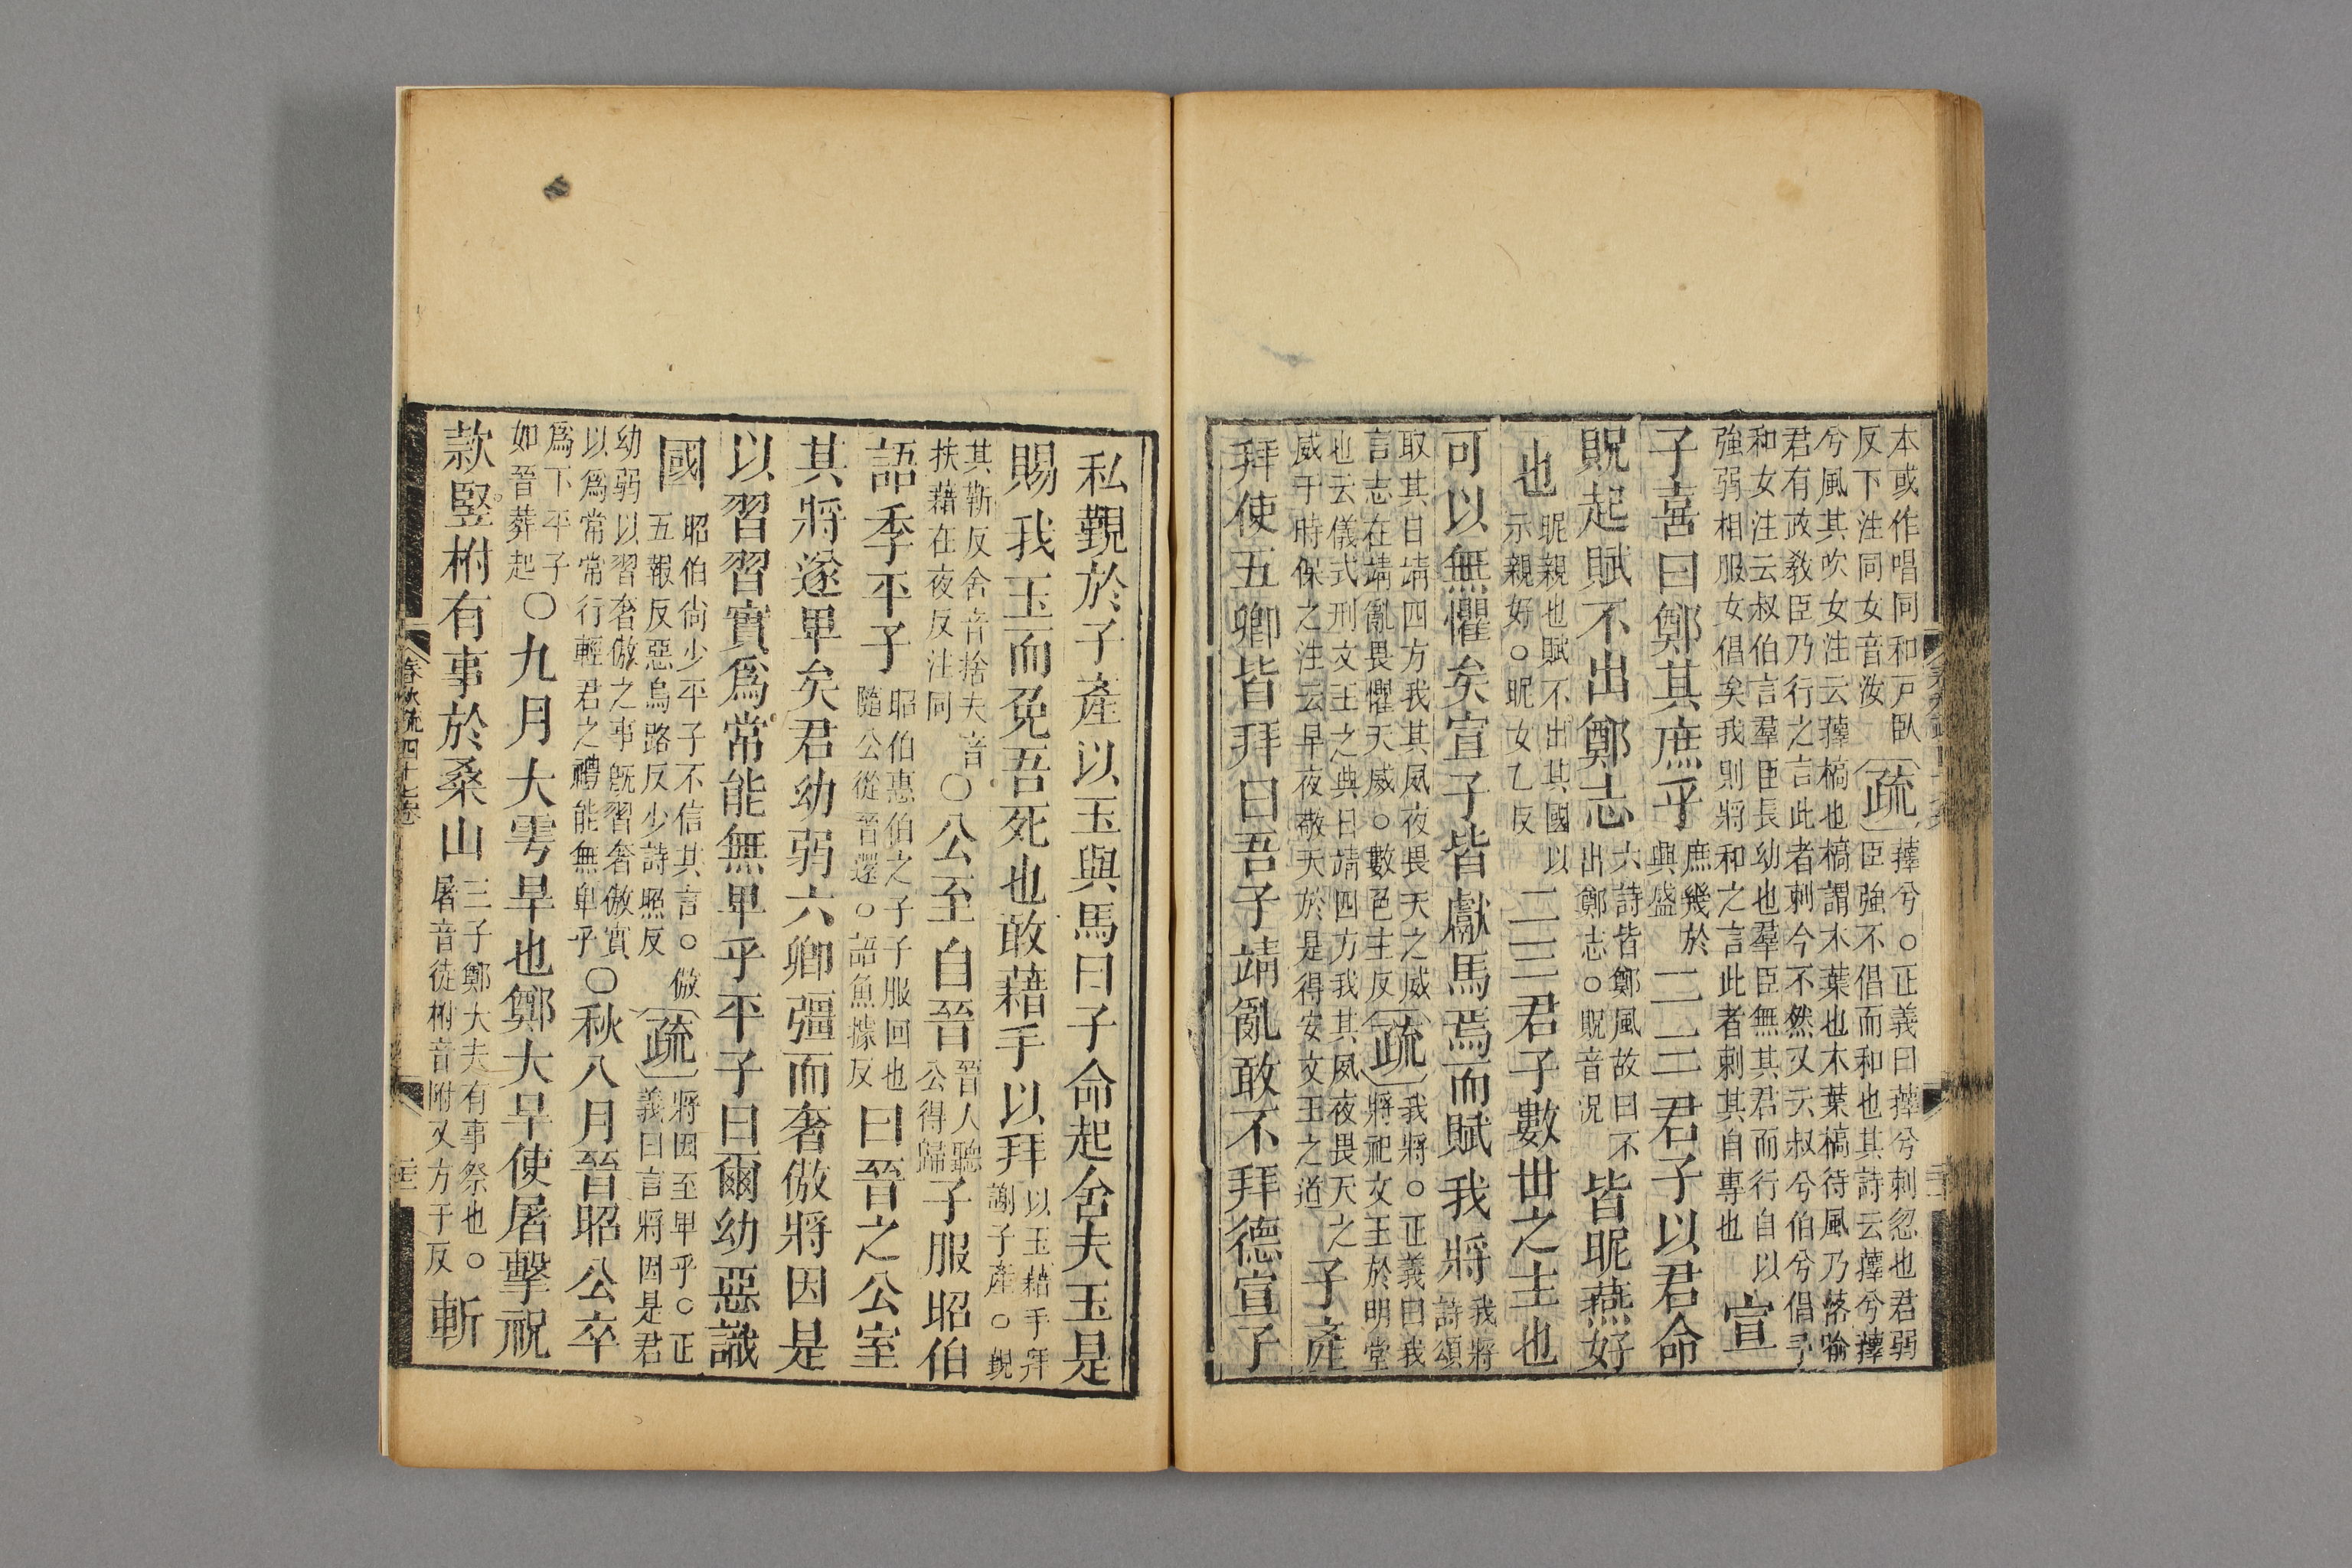 本或作唱同和戸臥
反下注同女音汝
疏
蘀兮○正義曰蘀兮刺忽也君弱
臣強不倡而和也其詩云蘀兮蘀
兮風其吹女注云蘀槁也槁謂木葉也木葉槁待風乃落喻
君有政教臣乃行之言此者刺今不然又云叔兮伯兮倡予
和女注云叔伯言羣臣長幼也羣臣無其君而行自以
強弱相服女倡矣我則將和之言此者刺其自專也
宣
子喜曰鄭其庶乎
庶幾於
興盛
二三君子以君命
貺起賦不出鄭志
六詩皆鄭風故曰不
出鄭志○貺音況
皆昵燕好
也
昵親也賦不出其國以
示親好○昵女乙反
二三君子數世之主也
可以無懼矣宣子皆獻馬焉而賦我將
我將
詩頌
取其日靖四方我其夙夜畏天之威
言志在靖亂畏懼天威○數色主反
疏
我將○正義曰我
將祀文王於明堂
也云儀式刑文王之典日靖四方我其夙夜畏天之
威于時保之注云早夜敬天於是得安文王之道
子產
拜使五卿皆拜曰吾子靖亂敢不拜德宣子
私覿於子產以玉與馬曰子命起舍夫玉是
賜我玉而免吾死也敢藉手以拜
以玉藉手拜
謝子產○覿
其靳反舍音捨夫音
扶藉在夜反注同
○公至自晉
晉人聽
公得歸
子服昭伯
語季平子
昭伯惠伯之子子服回也
隨公從晉還○語魚據反
曰晉之公室
其將遂卑矣君幼弱六卿彊而奢傲將因是
以習習實爲常能無卑乎平子曰爾幼惡識
國
昭伯尙少平子不信其言○傲
五報反惡烏路反少詩照反
疏
將因至卑乎○正
義曰言將因是君
幼弱以習奢傲之事旣習奢傲實
以爲常常行輕君之禮能無卑乎
○秋八月晉昭公卒
爲下平子
如晉葬起
○九月大雩旱也鄭大旱使屠擊祝
款豎柎有事於桑山
三子鄭大夫有事祭也○
屠音徒柎音附又方于反
斬
春秋疏四十七卷